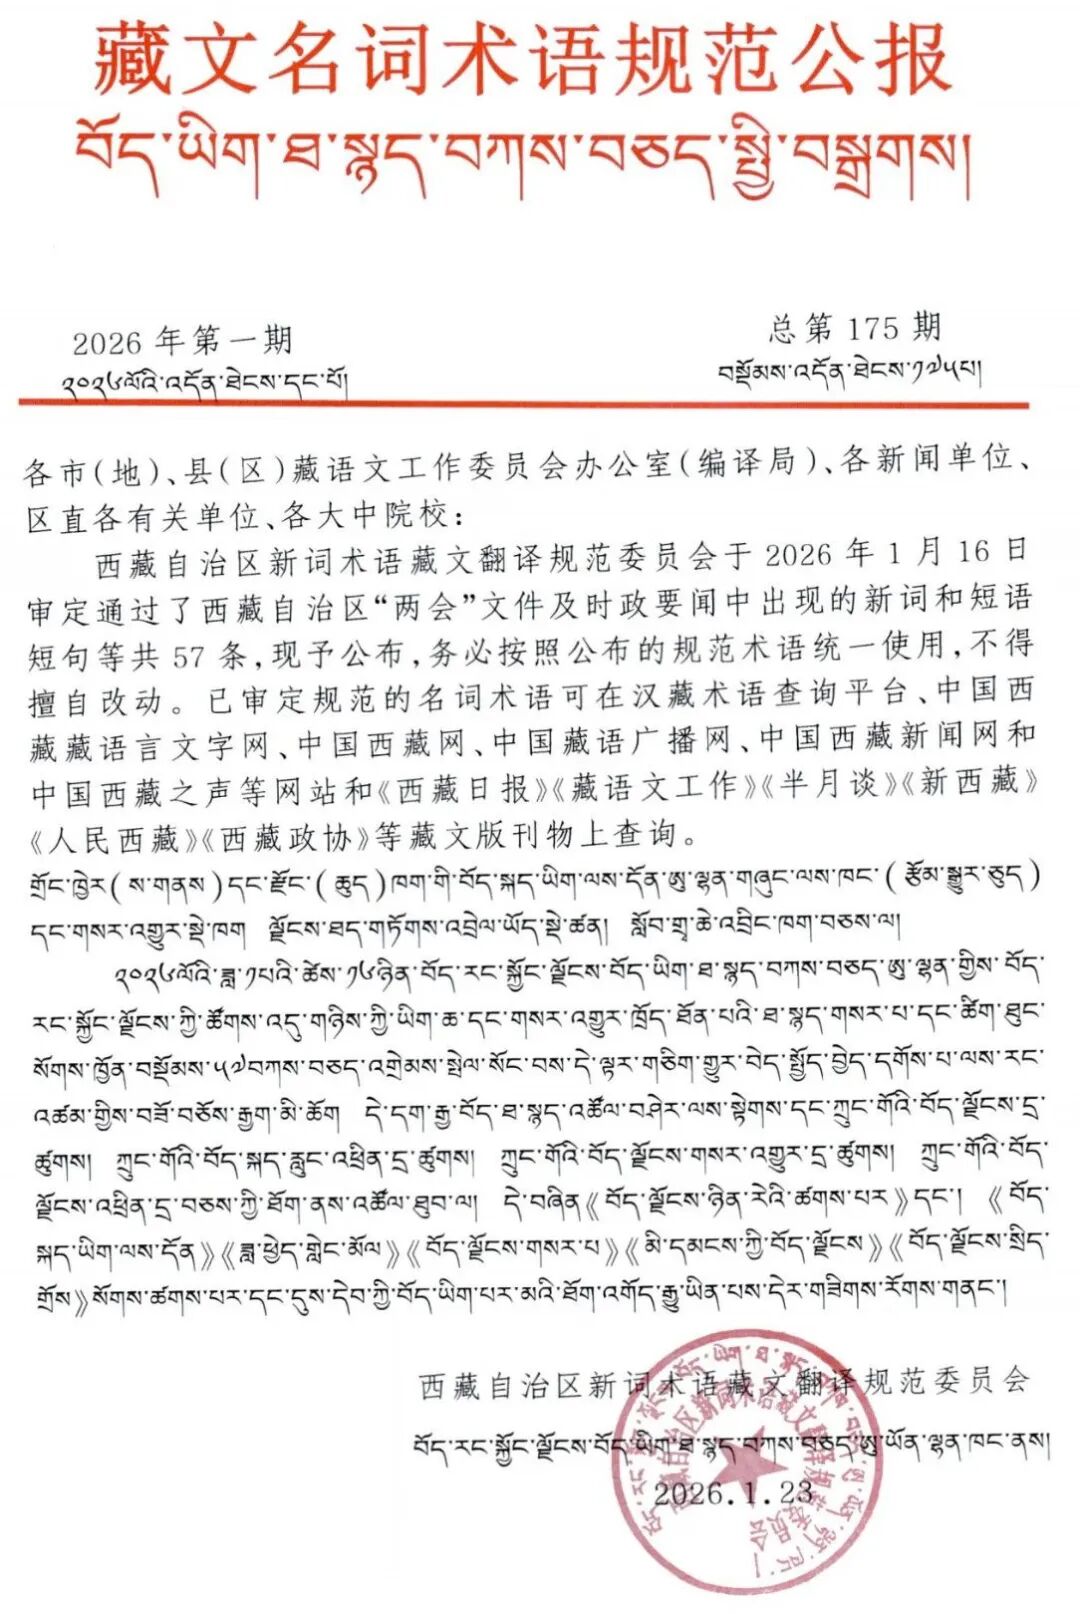 藏文名词术语规范公报
བོད་ཡིག་ཐ་སྙད་བཀས་བཅད་སྤྱི་བསྒྲགས།
2026 年第一期
总第 175 期
༢༠༢༦ལོའི་འདོན་ཐེངས་དང་པོ།
བསྡོམས་འདོན་ཐེངས་༡༧༥པ།
各市(地)、县(区)藏语文工作委员会办公室(编译局)、各新闻单位、
区直各有关单位、各大中院校:
西藏自治区新词术语藏文翻译规范委员会于 2026 年 1 月 16 日
审定通过了西藏自治区“两会”文件及时政要闻中出现的新词和短语
短句等共 57 条,现予公布,务必按照公布的规范术语统一使用,不得
擅自改动。已审定规范的名词术语可在汉藏术语查询平台、中国西
藏藏语言文字网、中国西藏网、中国藏语广播网、中国西藏新闻网和
中国西藏之声等网站和《西藏日报》《藏语文工作》《半月谈》《新西藏》
《人民西藏》《西藏政协》等藏文版刊物上查询。
གྲོང་ཁྱེར(ས་གནས)དང་རྫོང་(ཆུད)ཁག་གི་བོད་སྐད་ཡིག་ལས་དོན་ཨུ་ལྷན་གཞུང་ལས་ཁང་(རྩོམ་སྒྱུར་ཅུད)
དང་གསར་འགྱུར་སྡེ་ཁག ལྗོངས་ཐད་གཏོགས་འབྲེལ་ཡོད་སྡེ་ཚན། སློབ་གྲྭ་ཆེ་འབྲིང་ཁག་བཅས་ལ།
༢༠༢༦ལོའི་ཟླ་༡པའི་ཚེས་༡༦ཉིན་བོད་རང་སྐྱོང་ལྗོངས་བོད་ཡིག་ཐ་སྙད་བཀས་བཅད་ཨུ་ལྷན་གྱིས་བོད་
རང་སྐྱོང་ལྗོངས་ཀྱི་ཚོགས་འདུ་གཉིས་ཀྱི་ཡིག་ཆ་དང་གསར་འགྱུར་ཁྲོད་ཐོན་པའི་ཐ་སྙད་གསར་པ་དང་ཚིག་ཐུང་
སོགས་ཁྱོན་བསྡོམས་༥༧བཀས་བཅད་འགྲེམས་སྤེལ་སོང་བས་དེ་ལྟར་གཅིག་གྱུར་བེད་སྤྱོད་བྱེད་དགོས་པ་ལས་རང་
འཚམ་གྱིས་བཟོ་བཅོས་རྒྱག་མི་ཆོག དེ་དག་རྒྱ་བོད་ཐ་སྙད་འཚོལ་བཤེར་ལས་སྟེགས་དང་ཀྲུང་གོའི་བོད་ལྗོངས་དྲ་
ཚུགས། ཀྲུང་གོའི་བོད་སྐད་རླུང་འཕྲིན་དྲ་ཚུགས། ཀྲུང་གོའི་བོད་ལྗོངས་གསར་འགྱུར་དྲ་ཚུགས། ཀྲུང་གོའི་བོད་
ལྗོངས་འཕྲིན་དྲ་བཅས་ཀྱི་ཐོག་ནས་འཚོལ་ཐུབ་ལ། དེ་བཞིན《བོད་ལྗོངས་ཉིན་རེའི་ཚགས་པར》དང་། 《བོད་
སྐད་ཡིག་ལས་དོན》《ཟླ་ཕྱེད་གླེང་མོལ》《བོད་ལྗོངས་གསར་པ》《མི་དམངས་ཀྱི་བོད་ལྗོངས》《བོད་ལྗོངས་སྲིད་
གྲོས》སོགས་ཚགས་པར་དང་དུས་དེབ་ཀྱི་བོད་ཡིག་པར་མའི་ཐོག་འགོད་རྒྱུ་ཡིན་པས་དེར་གཟིགས་རོགས་གནང་།
西藏自治区新词术语藏文翻译规范委员会
བོད་རང་སྐྱོང་ལྗོངས་བོད་ཡིག་ཐ་སྙད་བཀས་བཅད་ཨུ་ཡོན་ལྷན་ཁང་ནས།
2026.1.23
西藏自治区新词术语藏文翻译规范委员会